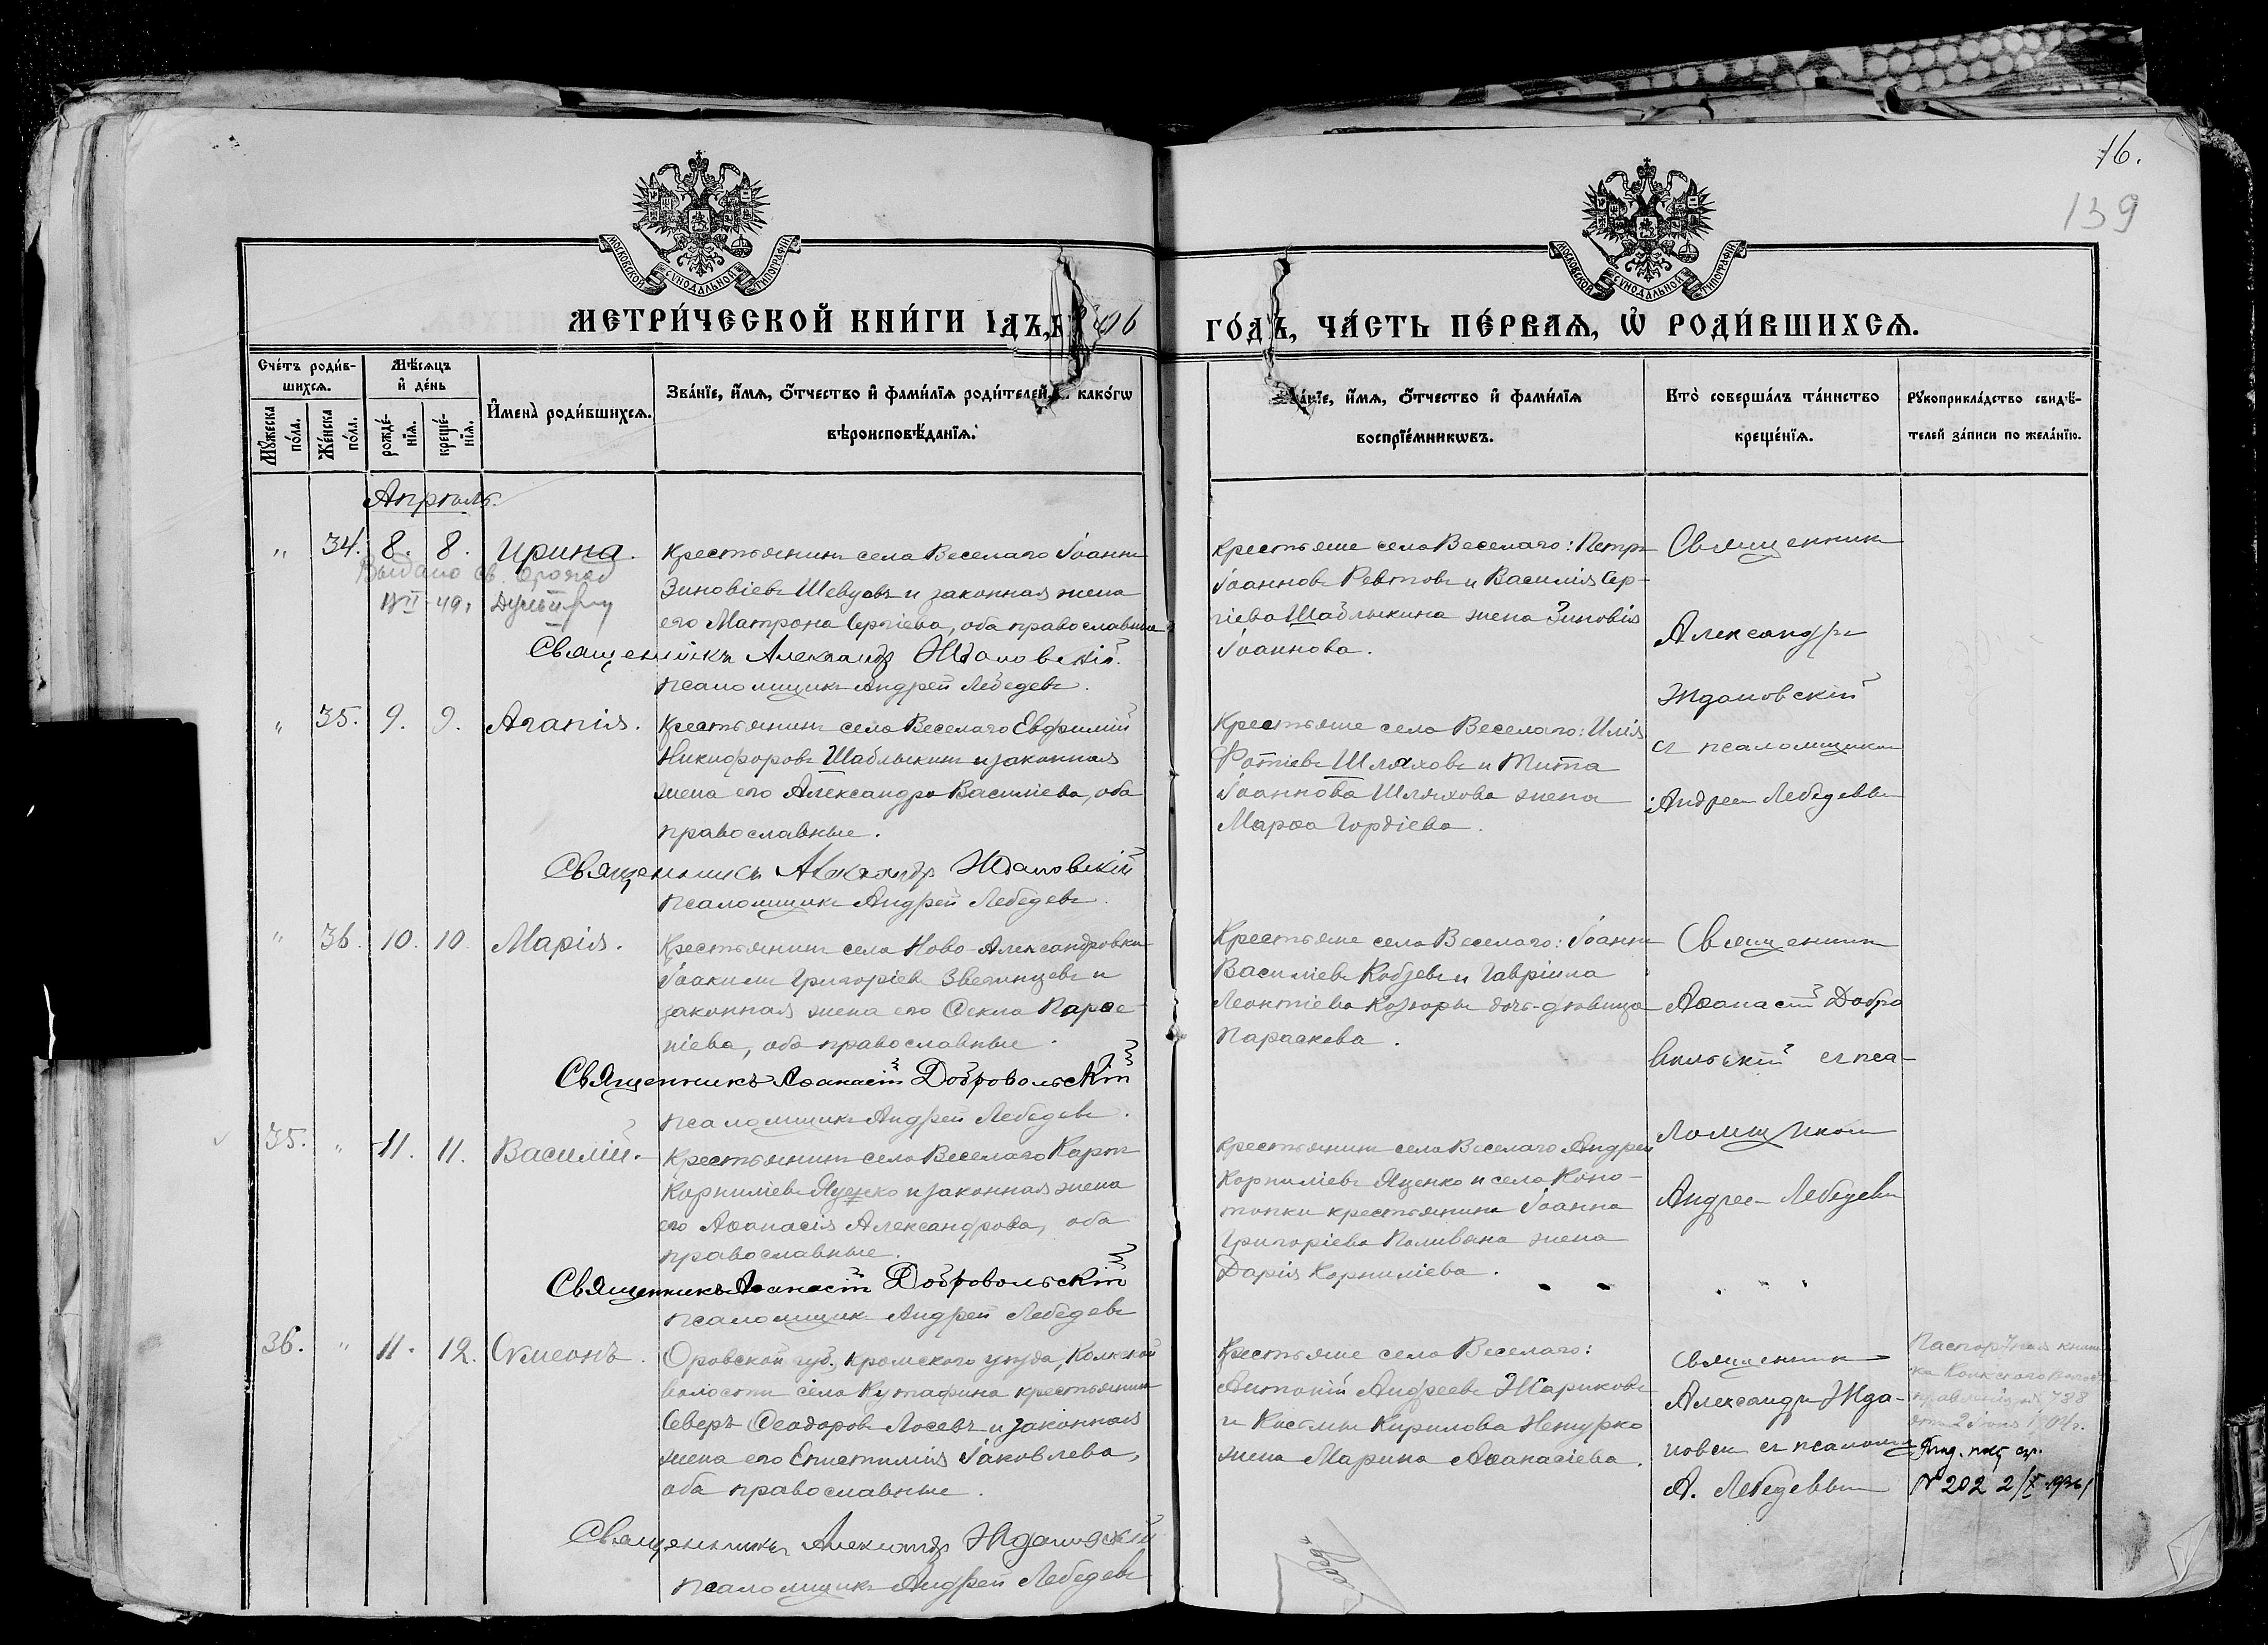 16.
139
МОСКОВСКОЙ СѴНОДАЛЬНОЙ ТИПОГРАФІИ
МОСКОВСКОЙ СѴНОДАЛЬНОЙ ТИПОГРАФІИ
МЕТРИ́ЧЕСКОЙ КНИ́ГИ
06
ГО́ДЪ, ЧА́СТЬ ПЕ́РВАѦ, Ѡ҆ РОДИ́ВШИХСѦ.
Сче́тъ роди́в-
шихсѧ.
Мѣ́сѧцъ
и҆ де́нь
Мꙋ́жеска
по́ла.
Же́нска
по́ла.
рожде́-
нїѧ.
креще́-
нїѧ.
И҆мена̀ роди́вшихсѧ.
Зва́нїе, и҆́мѧ, ѻ҆́тчество и҆ фами́лїѧ роди́телей, како́гѡ
вѣроисповѣ́данїѧ.
Зва́нїе, и҆́мѧ, ѻ҆́тчество и҆ фами́лїѧ
воспрїе́мникѡвъ.
Кто̀ соверша́лъ та́инство
креще́нїѧ.
Рꙋкоприкла́дство свидѣ́-
телей за́писи по жела́нїю.
Апрѣль.
" 34. 8. 8. Ирина.
Выдано св.
Крестьянинъ села Веселаго Іоаннъ
Зиновіевъ Шевцовъ и законная жена
его Матрона Сергіева, оба православные
Священникъ Александръ Ждановскій.
псаломщикъ Андрей Лебедевъ.
Крестьяне села Веселаго: Петръ
Іоанновъ Ревтовъ и Василія Сер-
гіева Шаблыкина жена Зиновія
Іоаннова.
Священникъ
Александръ
Ждановскій
съ псаломщикомъ
Андреемъ Лебедевымъ
" 35. 9. 9. Агапія.
Крестьянинъ села Веселаго Евфимій
Никифоровъ Шаблыкинъ и законная
жена его Александра Василіева, оба
православные.
Священникъ Александръ Ждановскій
псаломщикъ Андрей Лебедевъ.
Крестьяне села Веселаго: Илія
Фотіевъ Шляховъ и Тита
Іоаннова Шляхова жена
Марѳа Гордіева.
" 36. 10. 10. Марія.
Крестьянинъ села Ново-Александровки
Іоакимъ Григоріевъ Звегинцевъ и
законная жена его Ѳекла Парѳе-
ніева, оба православные.
Священникъ Аѳанасій Добровольскій
псаломщикъ Андрей Лебедевъ.
Крестьяне села Веселаго: Іоаннъ
Василіевъ Кобзевъ и Гавріила
Леонтіева Козтора дочь-дѣвица
Параскева.
Священникъ
Аѳанасій Добро
вольскій съ пса-
ломщикомъ
Андреемъ Лебедевымъ
35. " 11. 11. Василій.
Крестьянинъ села Веселаго Карпъ
Корниліевъ Яценко и законная жена
его Аѳанасія Александрова, оба
православные.
Священникъ Аѳанасій Добровольскій
псаломщикъ Андрей Лебедевъ
Крестьянинъ села Веселаго Андрей
Корниліевъ Яценко и села Коно-
топки крестьянина Іоанна
Григоріева Поливана жена
Дарія Корниліева.
36. " 11. 12. Сѵмеонъ.
Орловской губ., Кромского уѣзда, Колкской
волости села Кутафина крестьянинъ
Северъ Ѳеодоровъ Лосевъ и законная
жена его Епистимія Іаковлева,
оба православные.
Священникъ Александръ Ждановскій
псаломщикъ Андрей Лебедевъ
Крестьяне села Веселаго:
Антоній Андреевъ Жариковъ
и Косьмы Кирилова Нетурко
жена Марина Аѳанасіева.
Священникъ
Александръ Жда-
новскій съ псаломщ
А. Лебедевымъ
Паспортная книж
738
№ 202 2/X 1936